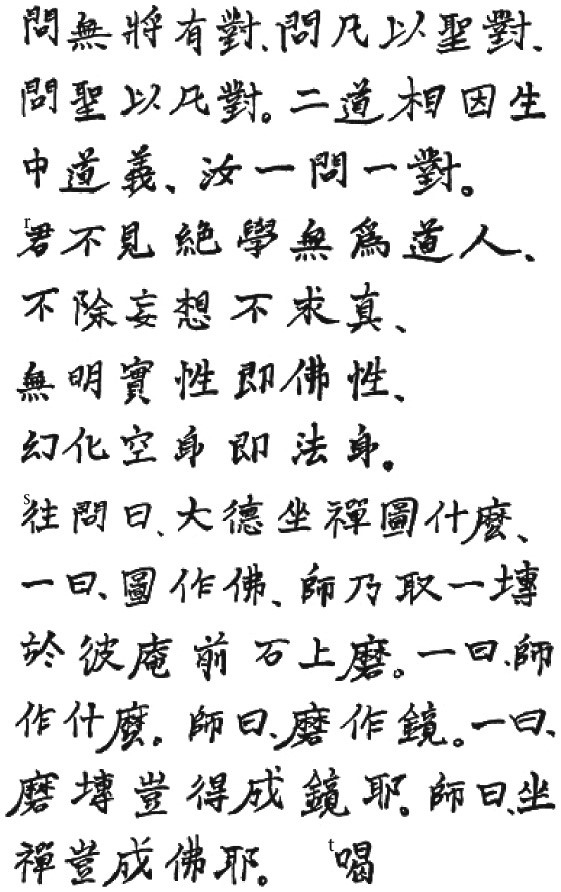 問無將有對、問凡以聖對、
問聖以凡對。二道相因生
中道義、汝一問一對。
r君不見絶學無爲道人、
不除妄想不求真、
無明實性即佛性、
幻化空身即法身。
s往問曰、大德坐禪圖什麼、
一曰、圖作佛、師乃取一塼
於彼庵前石上磨。一曰、師
作什麼。師曰、磨作鏡。一曰、
磨塼豈得成鏡耶。師曰、坐
禪豈成佛耶。 t喝